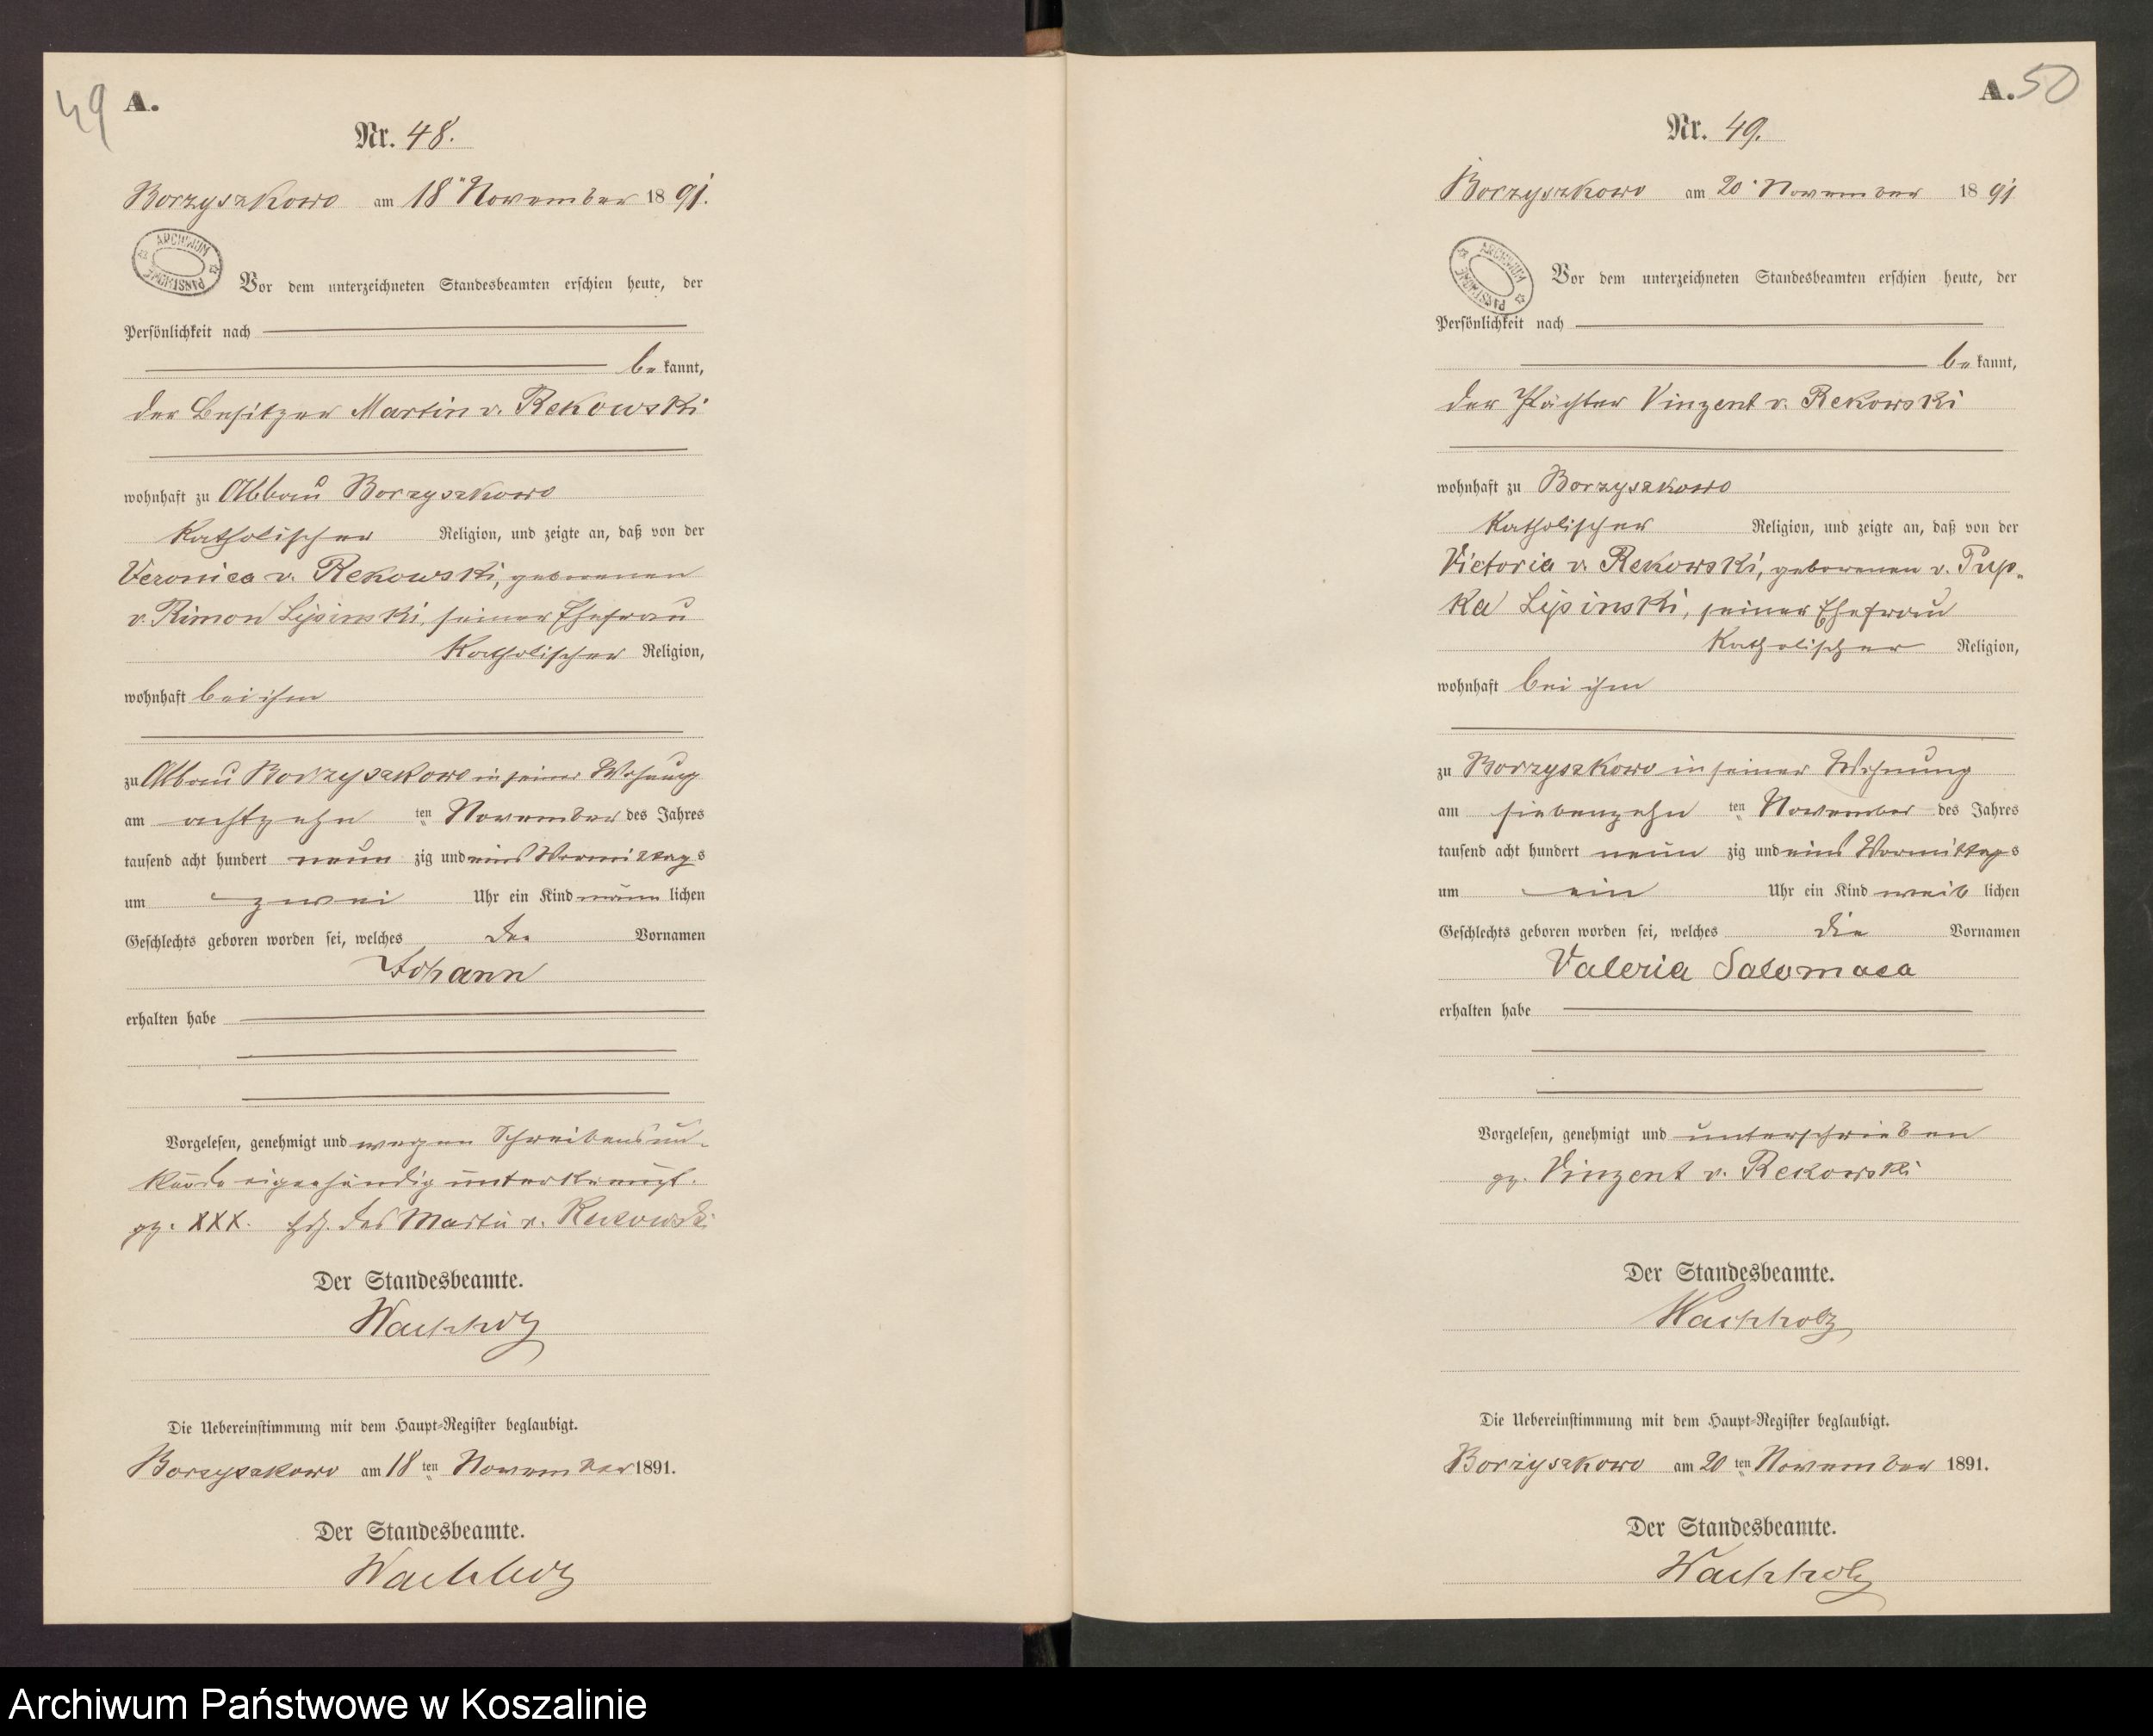 49 A.
Nr. 48.
Borzyszkowo am 18ten November 1891.
ARCHIWUM PAŃSTWOWE
Vor dem unterzeichneten Standesbeamten erschien heute, der
Persönlichkeit nach
bekannt,
der Besitzer Martin v. Rekowski
wohnhaft zu Abbau Borzyszkowo
katholischer Religion, und zeigte an, daß von der
Veronica v. Rekowski, geborenen
v. Rimon Lipinski, seiner Ehefrau
katholischer Religion,
wohnhaft bei ihm
zu Abbau Borzyszkowo in seiner Wohnung
am achtzehn ten November des Jahres
tausend acht hundert neun zig und eins Vormittags
um zwei Uhr ein Kind männ lichen
Geschlechts geboren worden sei, welches den Vornamen
Johann
erhalten habe
Vorgelesen, genehmigt und wegen Schreibensun-
kunde eigenhändig unterkreuzt.
gz. XXX. Hdz. des Martin v. Rekowski
Der Standesbeamte.
Wachholz
Die Uebereinstimmung mit dem Haupt-Register beglaubigt.
Borzyszkowo am 18 ten November 1891.
Der Standesbeamte.
Wachholz
A. 50
Nr. 49.
Borzyszkowo am 20. November 1891
ARCHIWUM PAŃSTWOWE
Vor dem unterzeichneten Standesbeamten erschien heute, der
Persönlichkeit nach
bekannt,
der Pächter Vinzent v. Rekowski
wohnhaft zu Borzyszkowo
katholischer Religion, und zeigte an, daß von der
Victoria v. Rekowski, geborenen v. Pup-
ka Lipinski, seiner Ehefrau
katholischer Religion,
wohnhaft bei ihm
zu Borzyszkowo in seiner Wohnung
am siebenzehn ten November des Jahres
tausend acht hundert neun zig und eins Vormittags
um ein Uhr ein Kind weib lichen
Geschlechts geboren worden sei, welches die Vornamen
Valeria Salomaea
erhalten habe
Vorgelesen, genehmigt und unterschrieben
gz. Vinzent v. Rekowski
Der Standesbeamte.
Wachholz
Die Uebereinstimmung mit dem Haupt-Register beglaubigt.
Borzyszkowo am 20 ten November 1891.
Der Standesbeamte.
Wachholz
Archiwum Państwowe w Koszalinie